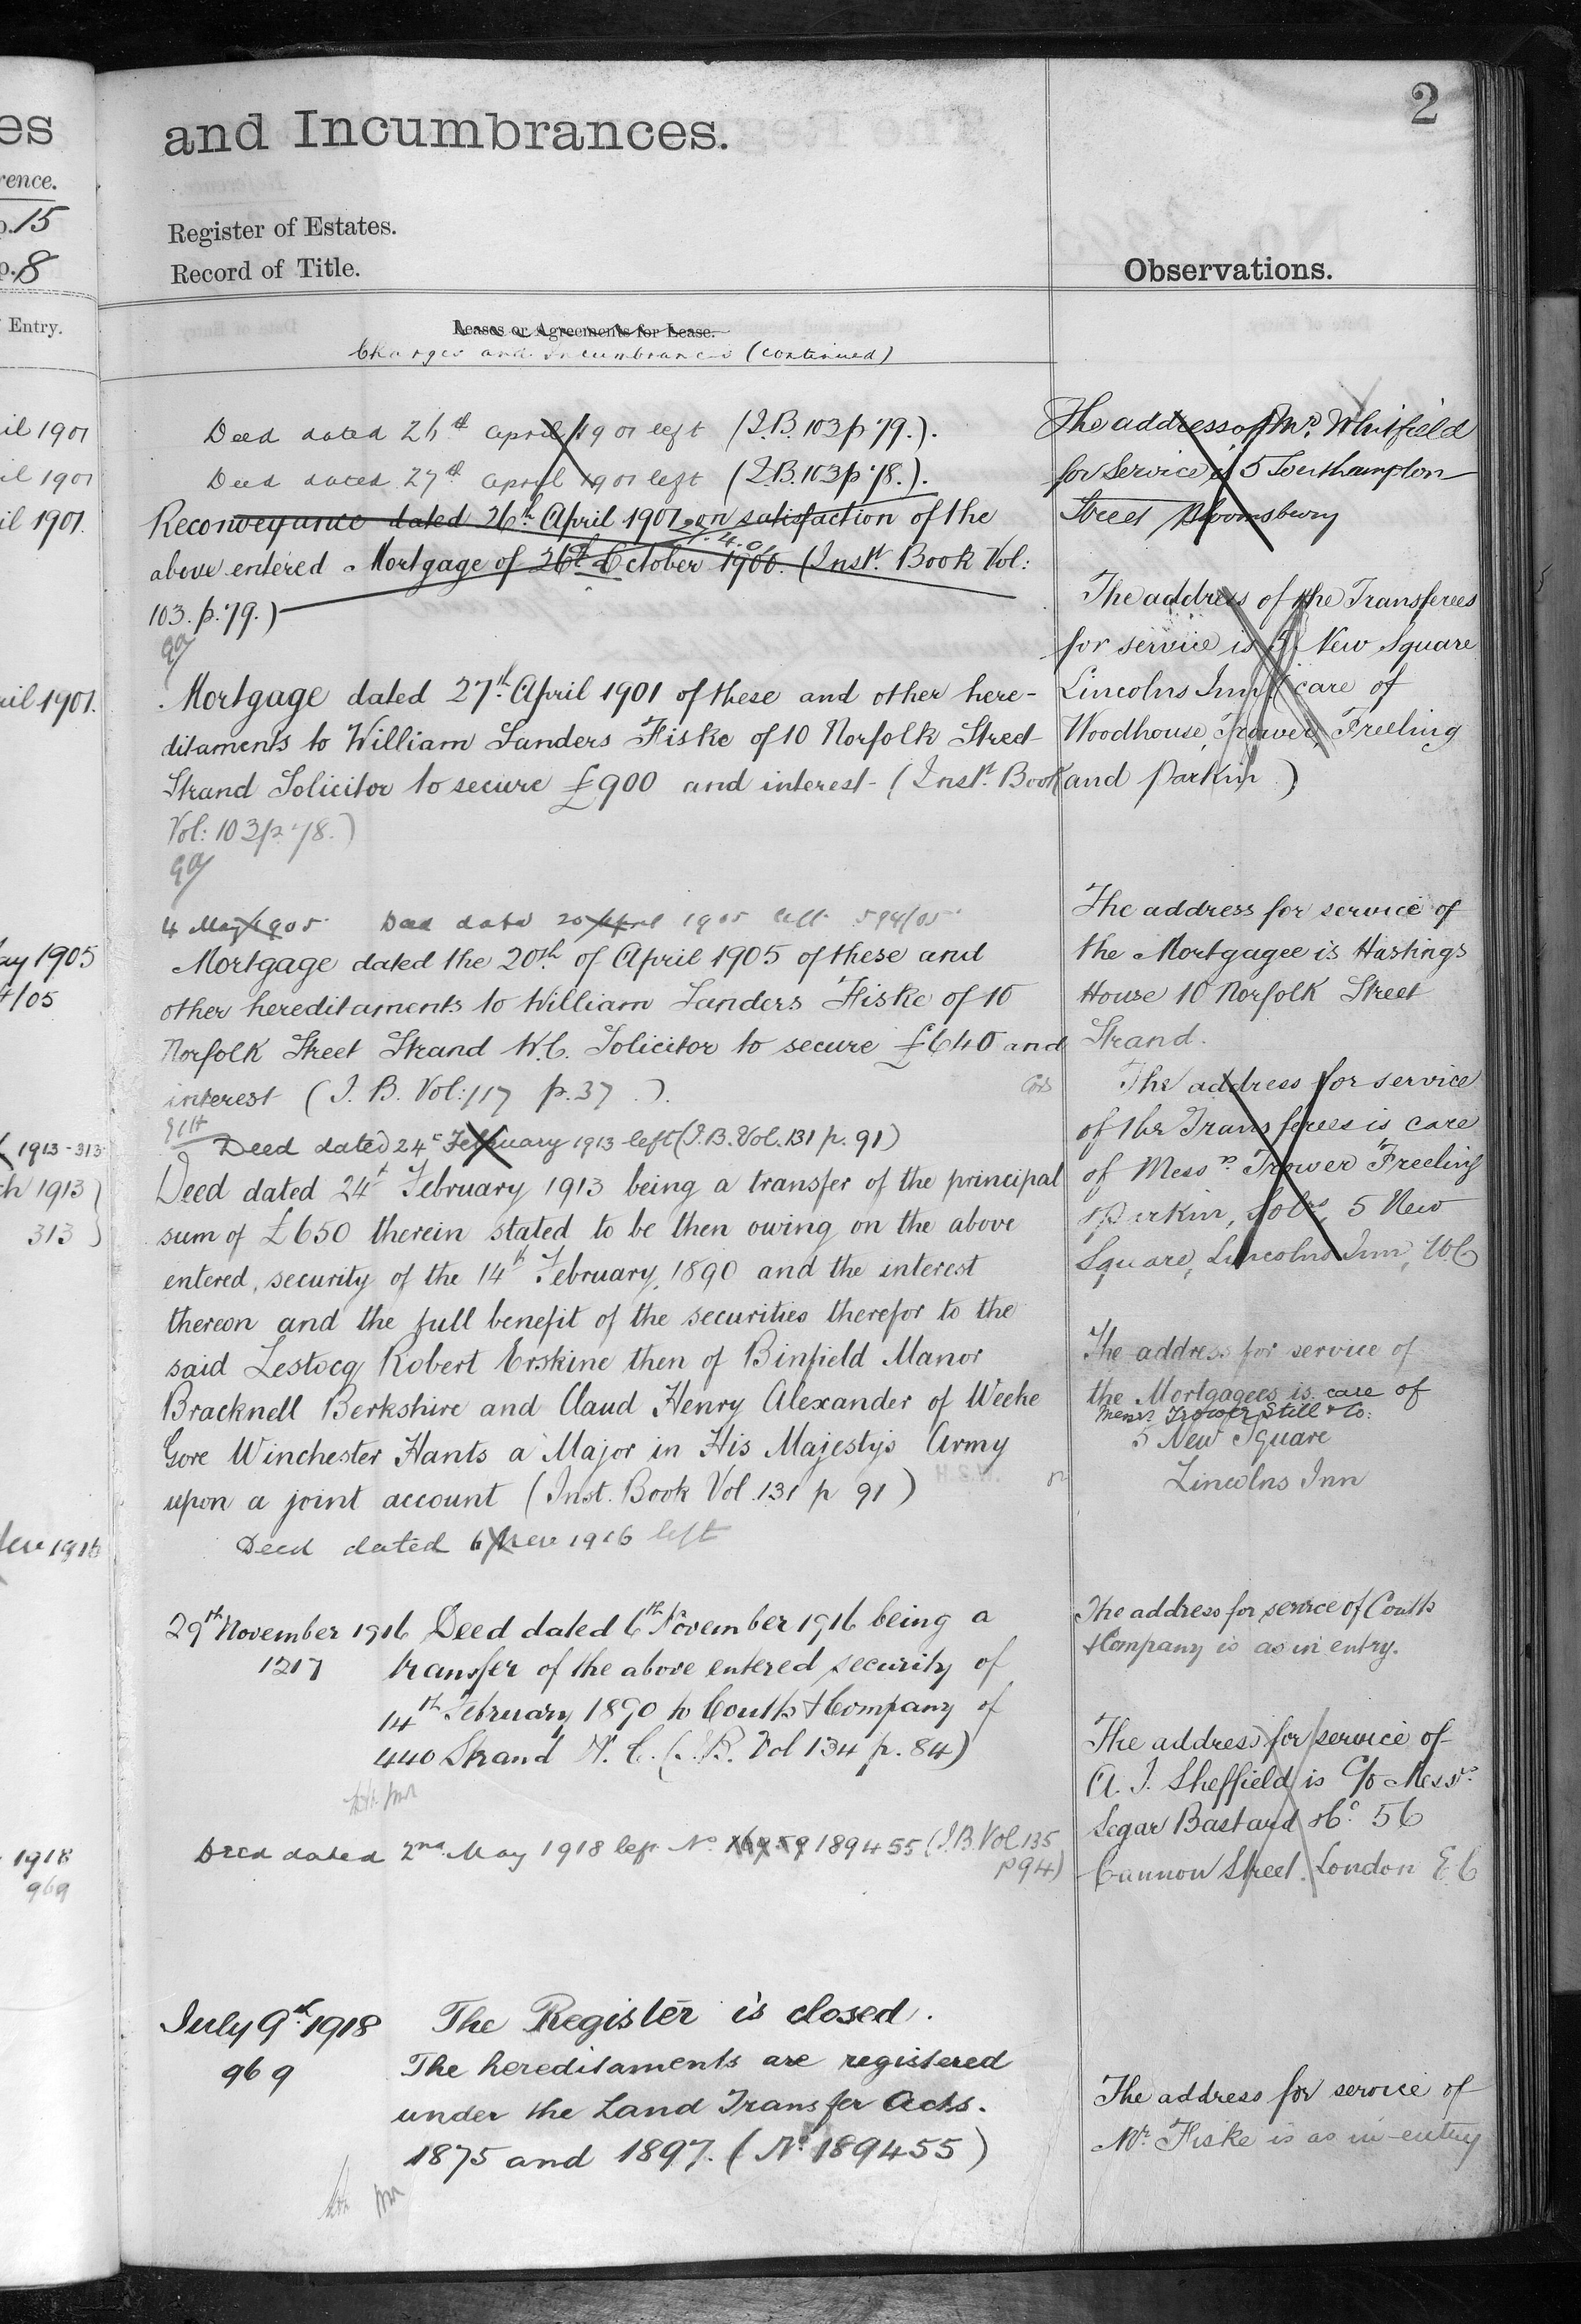 es
rence.
p. 15
p. 8
Entry.
il 1901
il 1901
il 1901.
ril 1901.
ay 1905
4/05
1913-313
ch 1913)
313 )
Nov 1916
1918
969
2
and Incumbrances.
Register of Estates.
Record of Title.
Observations.
Leases or Agreements for Lease.
Charges and Incumbrances (continued)
Deed dated 26th April 1901 left (I.B. 103 p 79.).
Deed dated 27th April 1901 left (I.B. 103 p 78.).
Reconveyance dated 26th April 1901 on satisfaction of the
above entered Mortgage of 26th October 1900. (Inst. Book Vol:
103. p. 79.)
Mortgage dated 27th April 1901 of these and other here-
ditaments to William Sanders Fiske of 10 Norfolk Street
Strand Solicitor to secure £900 and interest - (Inst. Book
Vol: 103 p. 78.)
4 May 1905 Deed dated 20 April 1905 left 594/05
Mortgage dated the 20th of April 1905 of these and
other hereditaments to William Sanders Fiske of 10
Norfolk Street Strand W.C. Solicitor to secure £640 and
interest (I. B. Vol: 117 p. 37 .).
Deed dated 24th February 1913 left (I.B. Vol. 131 p. 91)
Deed dated 24th February 1913 being a transfer of the principal
sum of £650 therein stated to be then owing on the above
entered, security of the 14th February 1890 and the interest
thereon and the full benefit of the securities therefor to the
said Lestocq Robert Erskine then of Binfield Manor
Bracknell Berkshire and Claud Henry Alexander of Weeke
Gore Winchester Hants a Major in His Majesty's Army
upon a joint account (Inst. Book Vol. 131 p 91)
Deed dated 6 Nov 1916 left
29th November 1916 Deed dated 6th November 1916 being a
1217 transfer of the above entered security of
14th February 1890 to Coutts & Company of
440 Strand W. C. (I.B. Vol 134 p. 84)
Deed dated 2nd May 1918 left No 189455 (I.B. Vol 135
p 94)
July 9th 1918 The Register is closed.
969 The hereditaments are registered
under the Land Transfer Acts.
1875 and 1897. (No 189455)
The address of Mr. Whitfield
for Service is 5 Southampton
Street Bloomsbury
The address of the Transferees
for service is 5 New Square
Lincolns Inn (care of
Woodhouse, Trower, Freeling
and Parkin)
The address for service of
the Mortgagee is Hastings
House 10 Norfolk Street
Strand.
The address for service
of the Transferees is care
of Messrs. Trower Freeling
& Parkin, Solrs, 5 New
Square, Lincolns Inn, W.C
The address for service of
the Mortgagees is care of
Messrs Trower Still & Co:
5 New Square
Lincolns Inn
The address for service of Coutts
& Company is as in entry.
The address for service of
A. J. Sheffield is c/o Messrs.
Segar Bastard & Co. 56
Cannon Street. London E.C
The address for service of
Mr. Fiske is as in entry